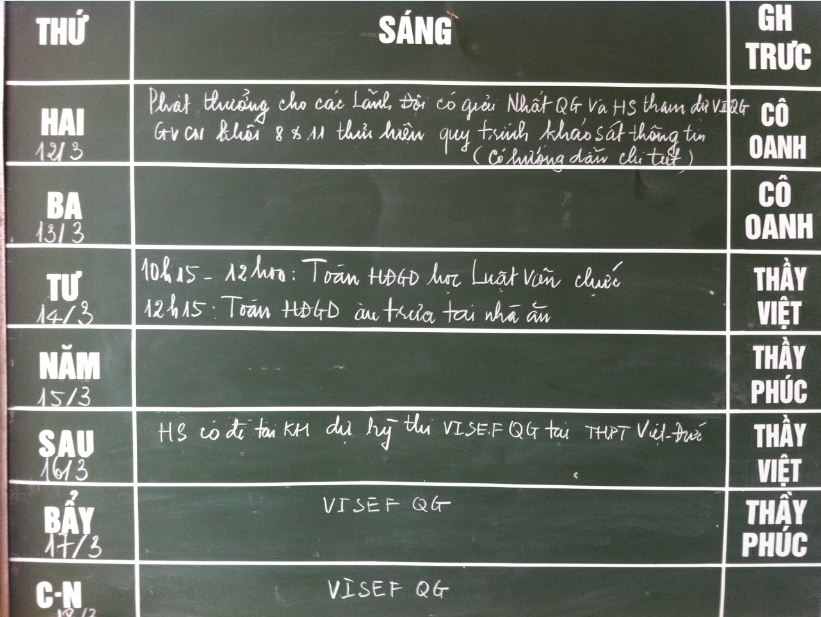 THỨ SÁNG GH TRƯC
HAI 12/3 Phát thưởng cho các Lãnh Đội có giải Nhất QG và HS tham dự VIQG CÔ OANH
GVCN khối 8 & 11 thực hiện quy trình khảo sát thông tin
(Có hướng dẫn chi tiết)
BA 13/3 CÔ OANH
TƯ 14/3 10h15 - 12h00: Toàn HĐGD học Luật Viên chức THẦY VIỆT
12h15: Toàn HĐGD ăn trưa tại nhà ăn
NĂM 15/3 THẦY PHÚC
SAU 16/3 HS có đề tài KH dự kỳ thi VISEF QG tại THPT Việt-Đức THẦY VIỆT
BẨY 17/3 VISEF QG THẦY PHÚC
C-N 18/3 VISEF QG